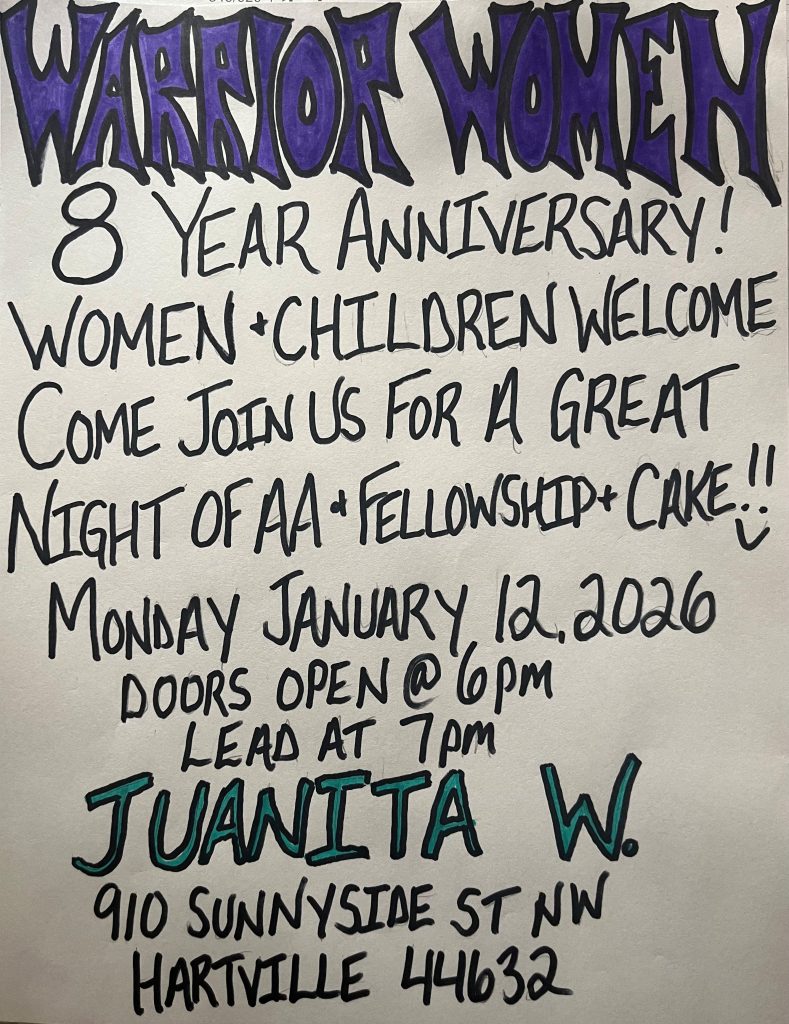 WARRIOR WOMEN
8 YEAR ANNIVERSARY!
WOMEN + CHILDREN WELCOME
COME JOIN US FOR A GREAT
NIGHT OF AA + FELLOWSHIP + CAKE!!
MONDAY JANUARY 12, 2026
DOORS OPEN @ 6pm
LEAD AT 7pm
JUANITA W.
910 SUNNYSIDE ST NW
HARTVILLE 44632